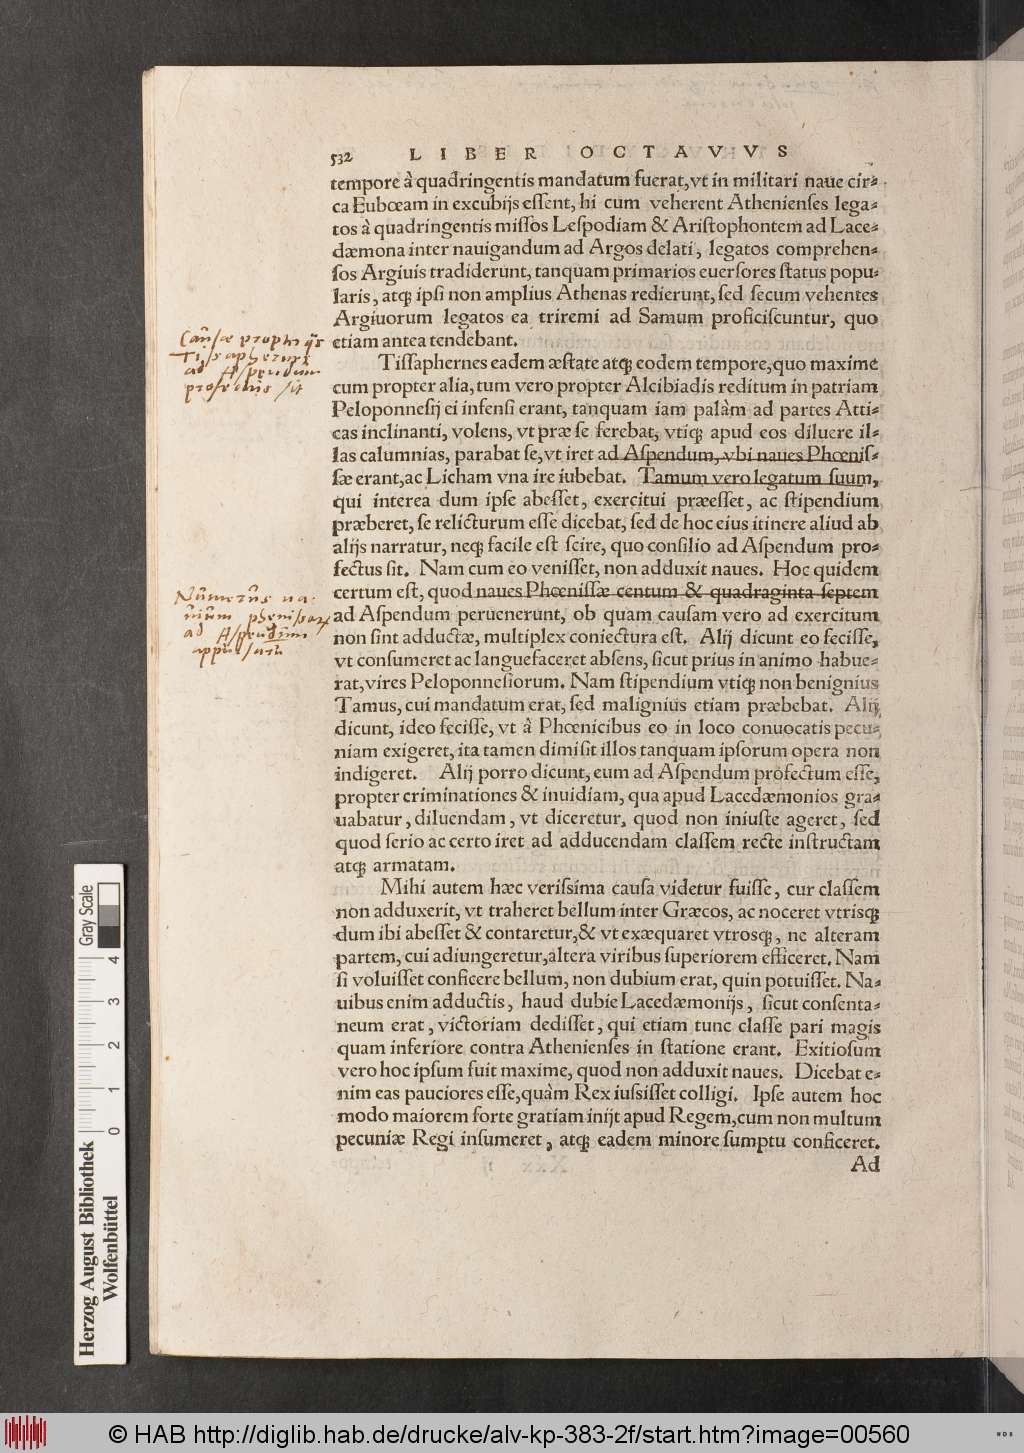 532 LIBER OCTAVVS
tempore à quadringentis mandatum fuerat, vt in militari naue cir-
ca Eubœam in excubijs eſſent, hi cum veherent Athenienſes lega-
tos à quadringentis miſſos Leſpodiam & Ariſtophontem ad Lace-
dæmona inter nauigandum ad Argos delati, legatos comprehen-
ſos Argiuis tradiderunt, tanquam primarios euerſores ſtatus popu-
laris, atq; ipſi non amplius Athenas redierunt, ſed ſecum vehentes
Argiuorum legatos ea triremi ad Samum proficiſcuntur, quo
etiam antea tendebant.
Cauſæ propter quas
Tiſſaphernes
ad Aſpendum
profectus ſit
Tiſſaphernes eadem æſtate atq; eodem tempore, quo maxime
cum propter alia, tum vero propter Alcibiadis reditum in patriam
Peloponneſij ei infenſi erant, tanquam iam palàm ad partes Atti-
cas inclinanti, volens, vt præ ſe ferebat, vtiq; apud eos diluere il-
las calumnias, parabat ſe, vt iret ad Aſpendum, vbi naues Phœniſ-
ſæ erant, ac Licham vna ire iubebat. Tamum vero legatum ſuum,
qui interea dum ipſe abeſſet, exercitui præeſſet, ac ſtipendium
præberet, ſe relicturum eſſe dicebat, ſed de hoc eius itinere aliud ab
alijs narratur, neq; facile eſt ſcire, quo conſilio ad Aſpendum pro-
fectus ſit. Nam cum eo veniſſet, non adduxit naues. Hoc quidem
certum eſt, quod naues Phœniſſæ centum & quadraginta ſeptem
Numerus na-
uium pheniſſarum
ad Aſpendum
ad Aſpendum peruenerunt, ob quam cauſam vero ad exercitum
non ſint adductæ, multiplex coniectura eſt. Alij dicunt eo feciſſe,
vt conſumeret ac languefaceret abſens, ſicut prius in animo habue-
rat, vires Peloponneſiorum. Nam ſtipendium vtiq; non benignius
Tamus, cui mandatum erat, ſed malignius etiam præbebat. Alij
dicunt, ideo feciſſe, vt à Phœnicibus eo in loco conuocatis pecu-
niam exigeret, ita tamen dimiſit illos tanquam ipſorum opera non
indigeret. Alij porro dicunt, eum ad Aſpendum profectum eſſe,
propter criminationes & inuidiam, qua apud Lacedæmonios gra-
uabatur, diluendam, vt diceretur, quod non iniuſte ageret, ſed
quod ſerio ac certo iret ad adducendam claſſem recte inſtructam
atq; armatam.
Mihi autem hæc veriſsima cauſa videtur fuiſſe, cur claſſem
non adduxerit, vt traheret bellum inter Græcos, ac noceret vtriſq;
dum ibi abeſſet & contaretur, & vt exæquaret vtroſq;, ne alteram
partem, cui adiungeretur, altera viribus ſuperiorem efficeret. Nam
ſi voluiſſet conficere bellum, non dubium erat, quin potuiſſet. Na-
uibus enim adductis, haud dubie Lacedæmonijs, ſicut conſenta-
neum erat, victoriam dediſſet, qui etiam tunc claſſe pari magis
quam inferiore contra Athenienſes in ſtatione erant. Exitioſum
vero hoc ipſum fuit maxime, quod non adduxit naues. Dicebat e-
nim eas pauciores eſſe, quàm Rex iuſsiſſet colligi. Ipſe autem hoc
modo maiorem forte gratiam inijt apud Regem, cum non multum
pecuniæ Regi inſumeret, atq; eadem minore ſumptu conficeret.
Ad
Herzog August Bibliothek
Wolfenbüttel
0 1 2 3 4
Gray Scale
© HAB http://diglib.hab.de/drucke/alv-kp-383-2f/start.htm?image=00560